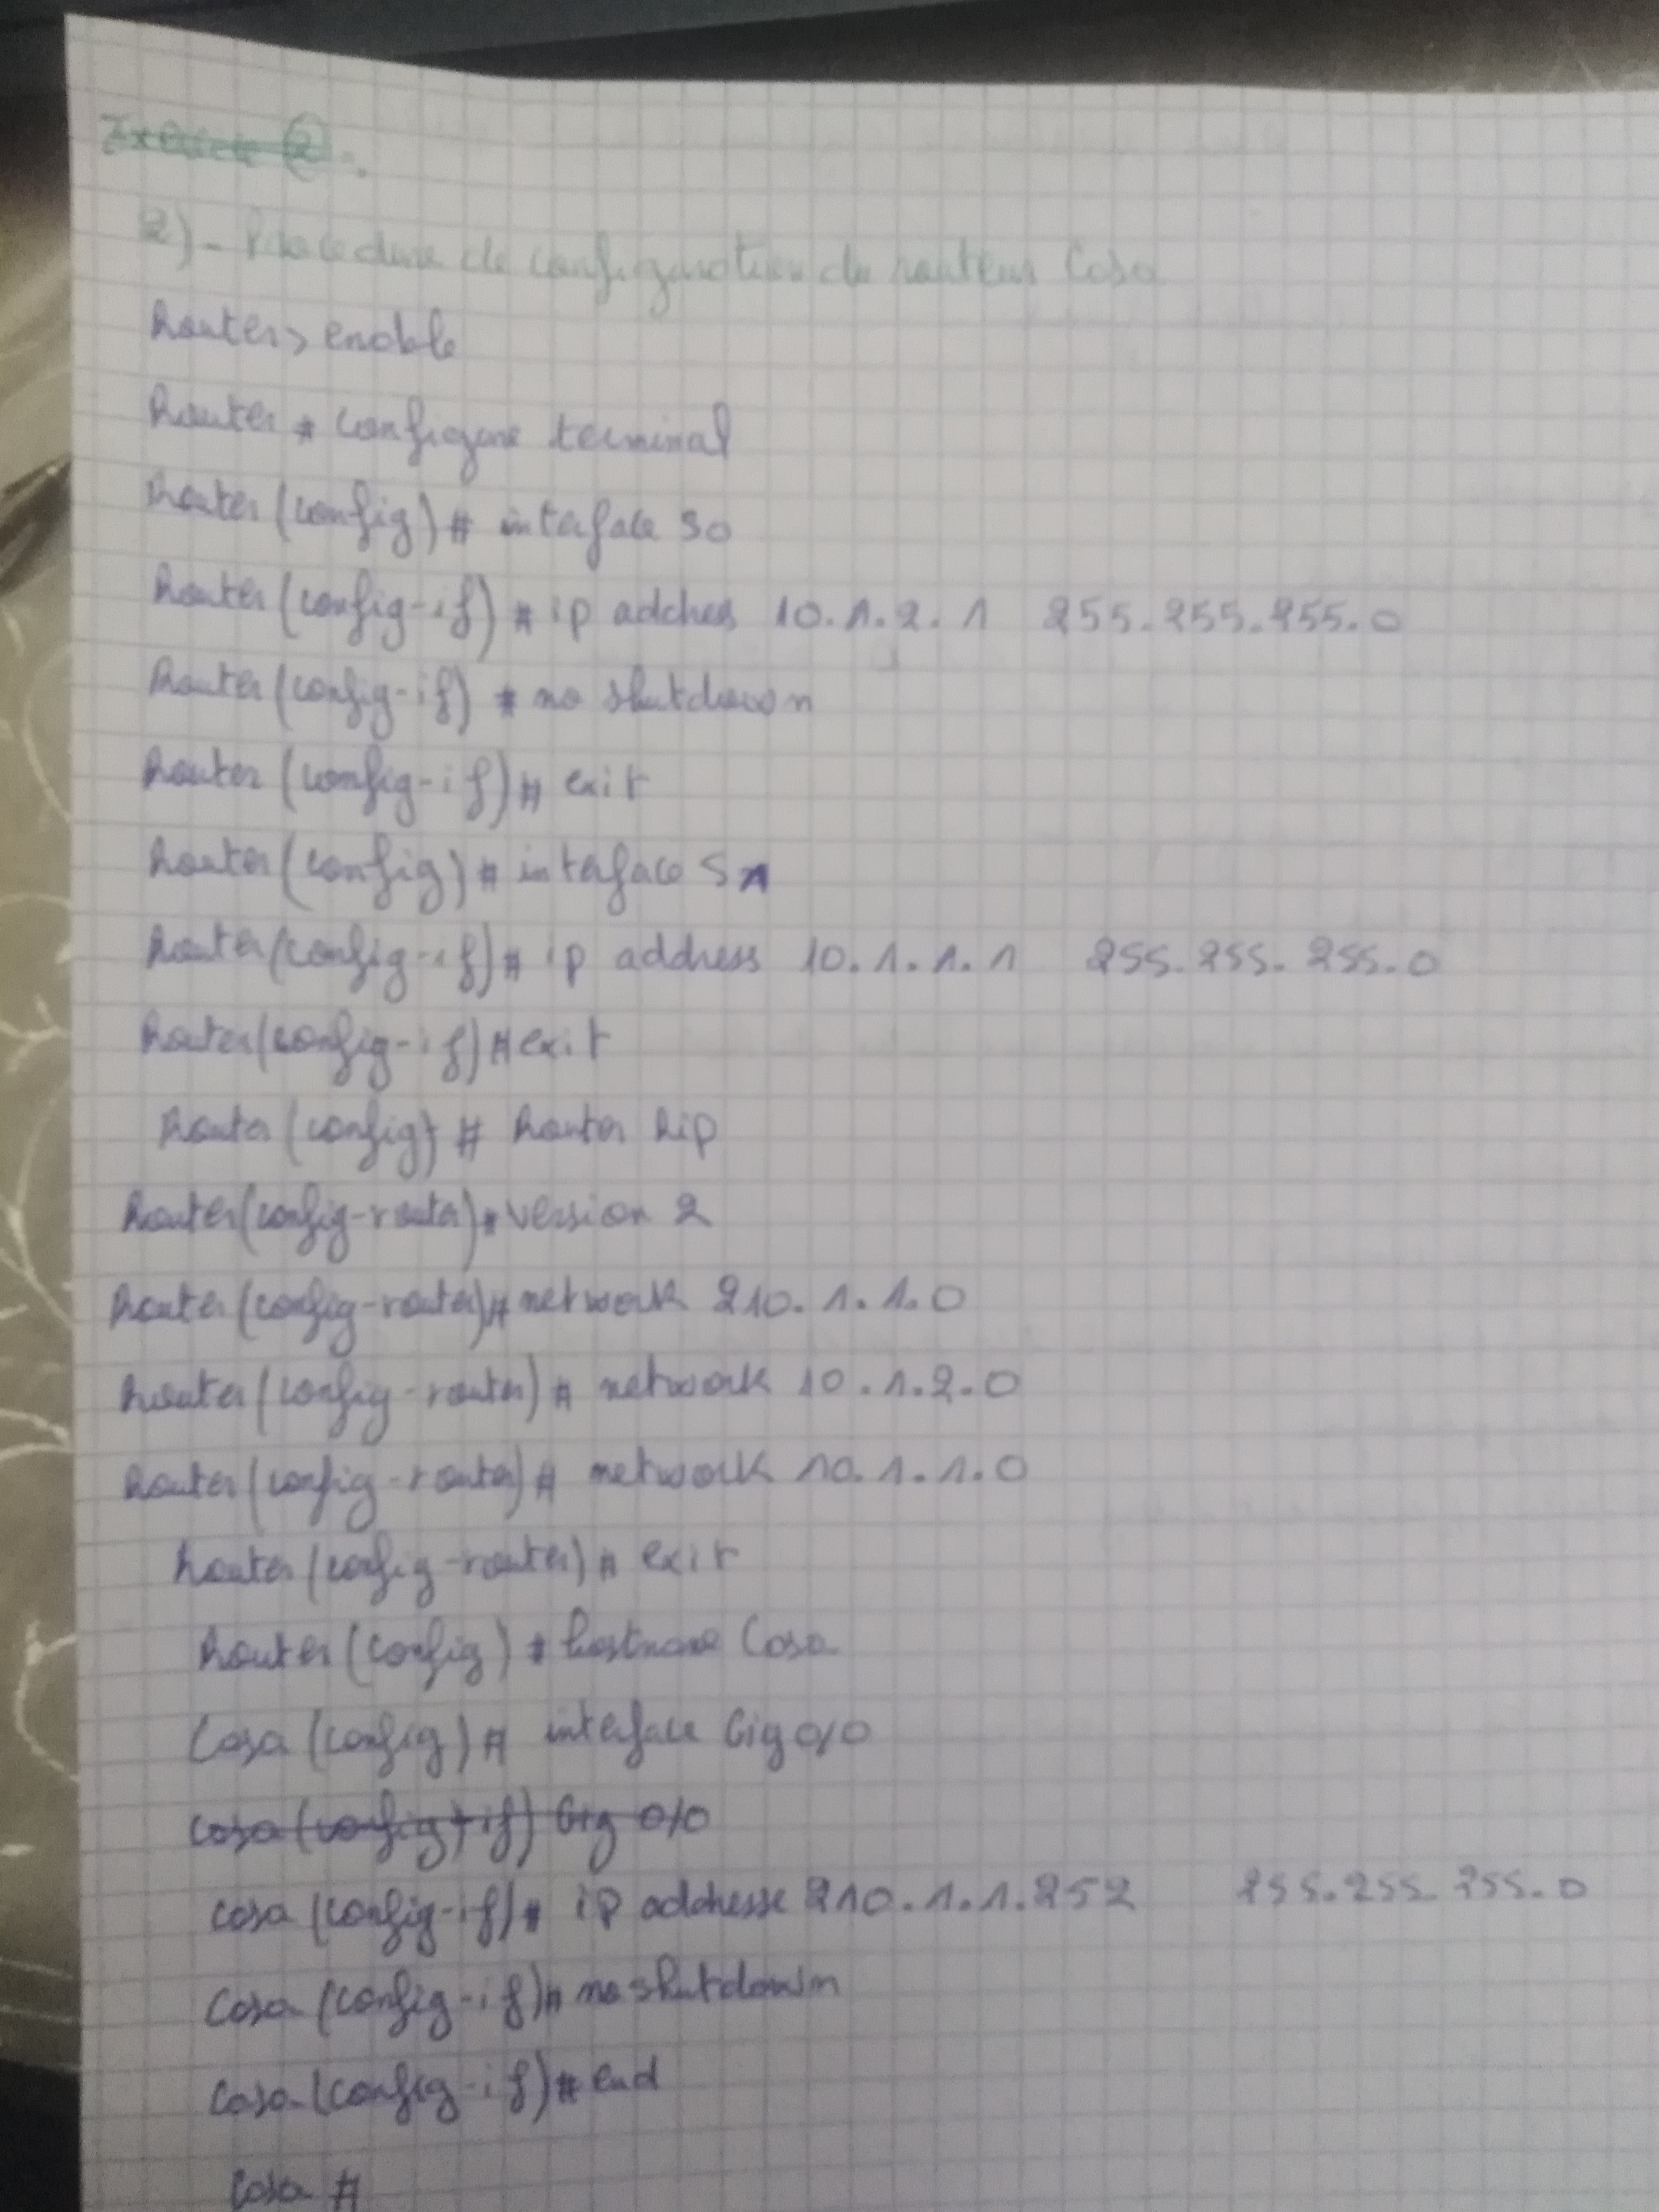 Exercice 2.
2)- Procedure de configuration du routeur Casa
Router> enable
Router # configure terminal
Router (config) # interface S0
Router (config-if) # ip addres 10.1.2.1 255.255.255.0
Router (config-if) # no shutdown
Router (config-if) # exit
Router (config) # interface S1
Router (config-if) # ip address 10.1.1.1 255.255.255.0
Router (config-if) # exit
Router (config) # Router Rip
Router (config-router) # version 2
Router (config-router) # network 210.1.1.0
Router (config-router) # network 10.1.2.0
Router (config-router) # network 10.1.1.0
Router (config-router) # exit
Router (config) # hostname Casa
Casa (config) # interface Gig 0/0
Casa (config) if) Gig 0/0
Casa (config-if) # ip addresse 210.1.1.252 255.255.255.0
Casa (config-if) # no shutdown
Casa (config-if) # end
Casa #